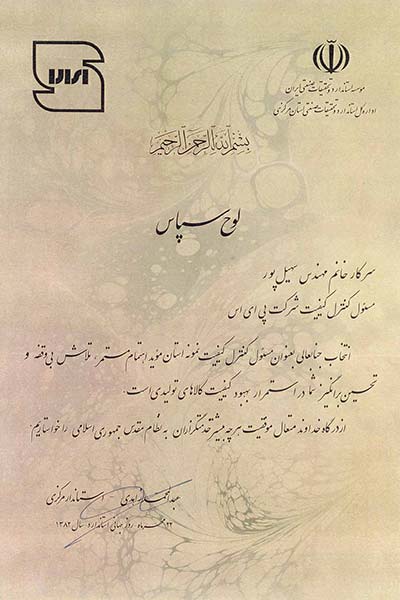 موسسه استاندارد و تحقیقات صنعتی ایران
اداره کل استاندارد و تحقیقات صنعتی استان مرکزی
بسم الله الرحمن الرحیم
لوح سپاس
سرکار خانم مهندس سهیل پور
مسئول کنترل کیفیت شرکت پی ای اس
انتخاب جنابعالی بعنوان مسئول کنترل کیفیت نمونه استان مؤید اهتمام مستمر، تلاش بی وقفه و
تحسین برانگیز شما در استمرار بهبود کیفیت کالاهای تولیدی است.
از درگاه خداوند متعال موفقیت هرچه بیشتر خدمتگزاران به نظام مقدس جمهوری اسلامی را خواستاریم.
عبدالمحمد زاهدی استاندار مرکزی
۲۲ مهرماه روز جهانی استاندارد سال ۱۳۸۲